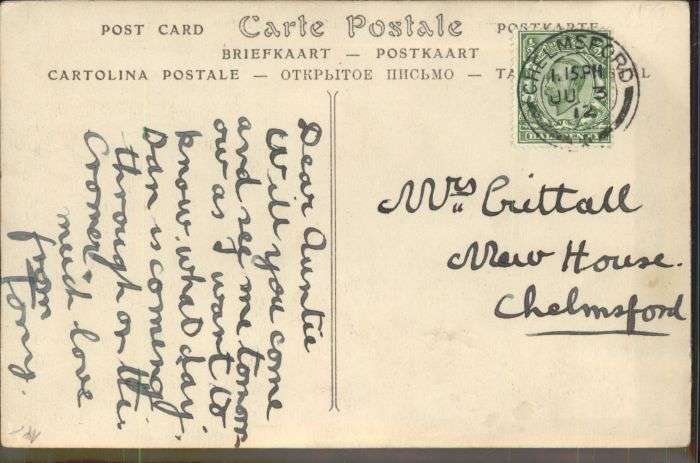 POST CARD Carte Postale POSTKARTE
BRIEFKAART — POSTKAART
CARTOLINA POSTALE — ОТКРЫТОЕ ПИСЬМО —
CHELMSFORD
1.15PM
JU
12
Dear Auntie
Will you come
and see me tomorr
ow as I want to
know what day
Dan is comeing
through or the
Cromer
much love
from
Mrs Crittall
New House.
Chelmsford